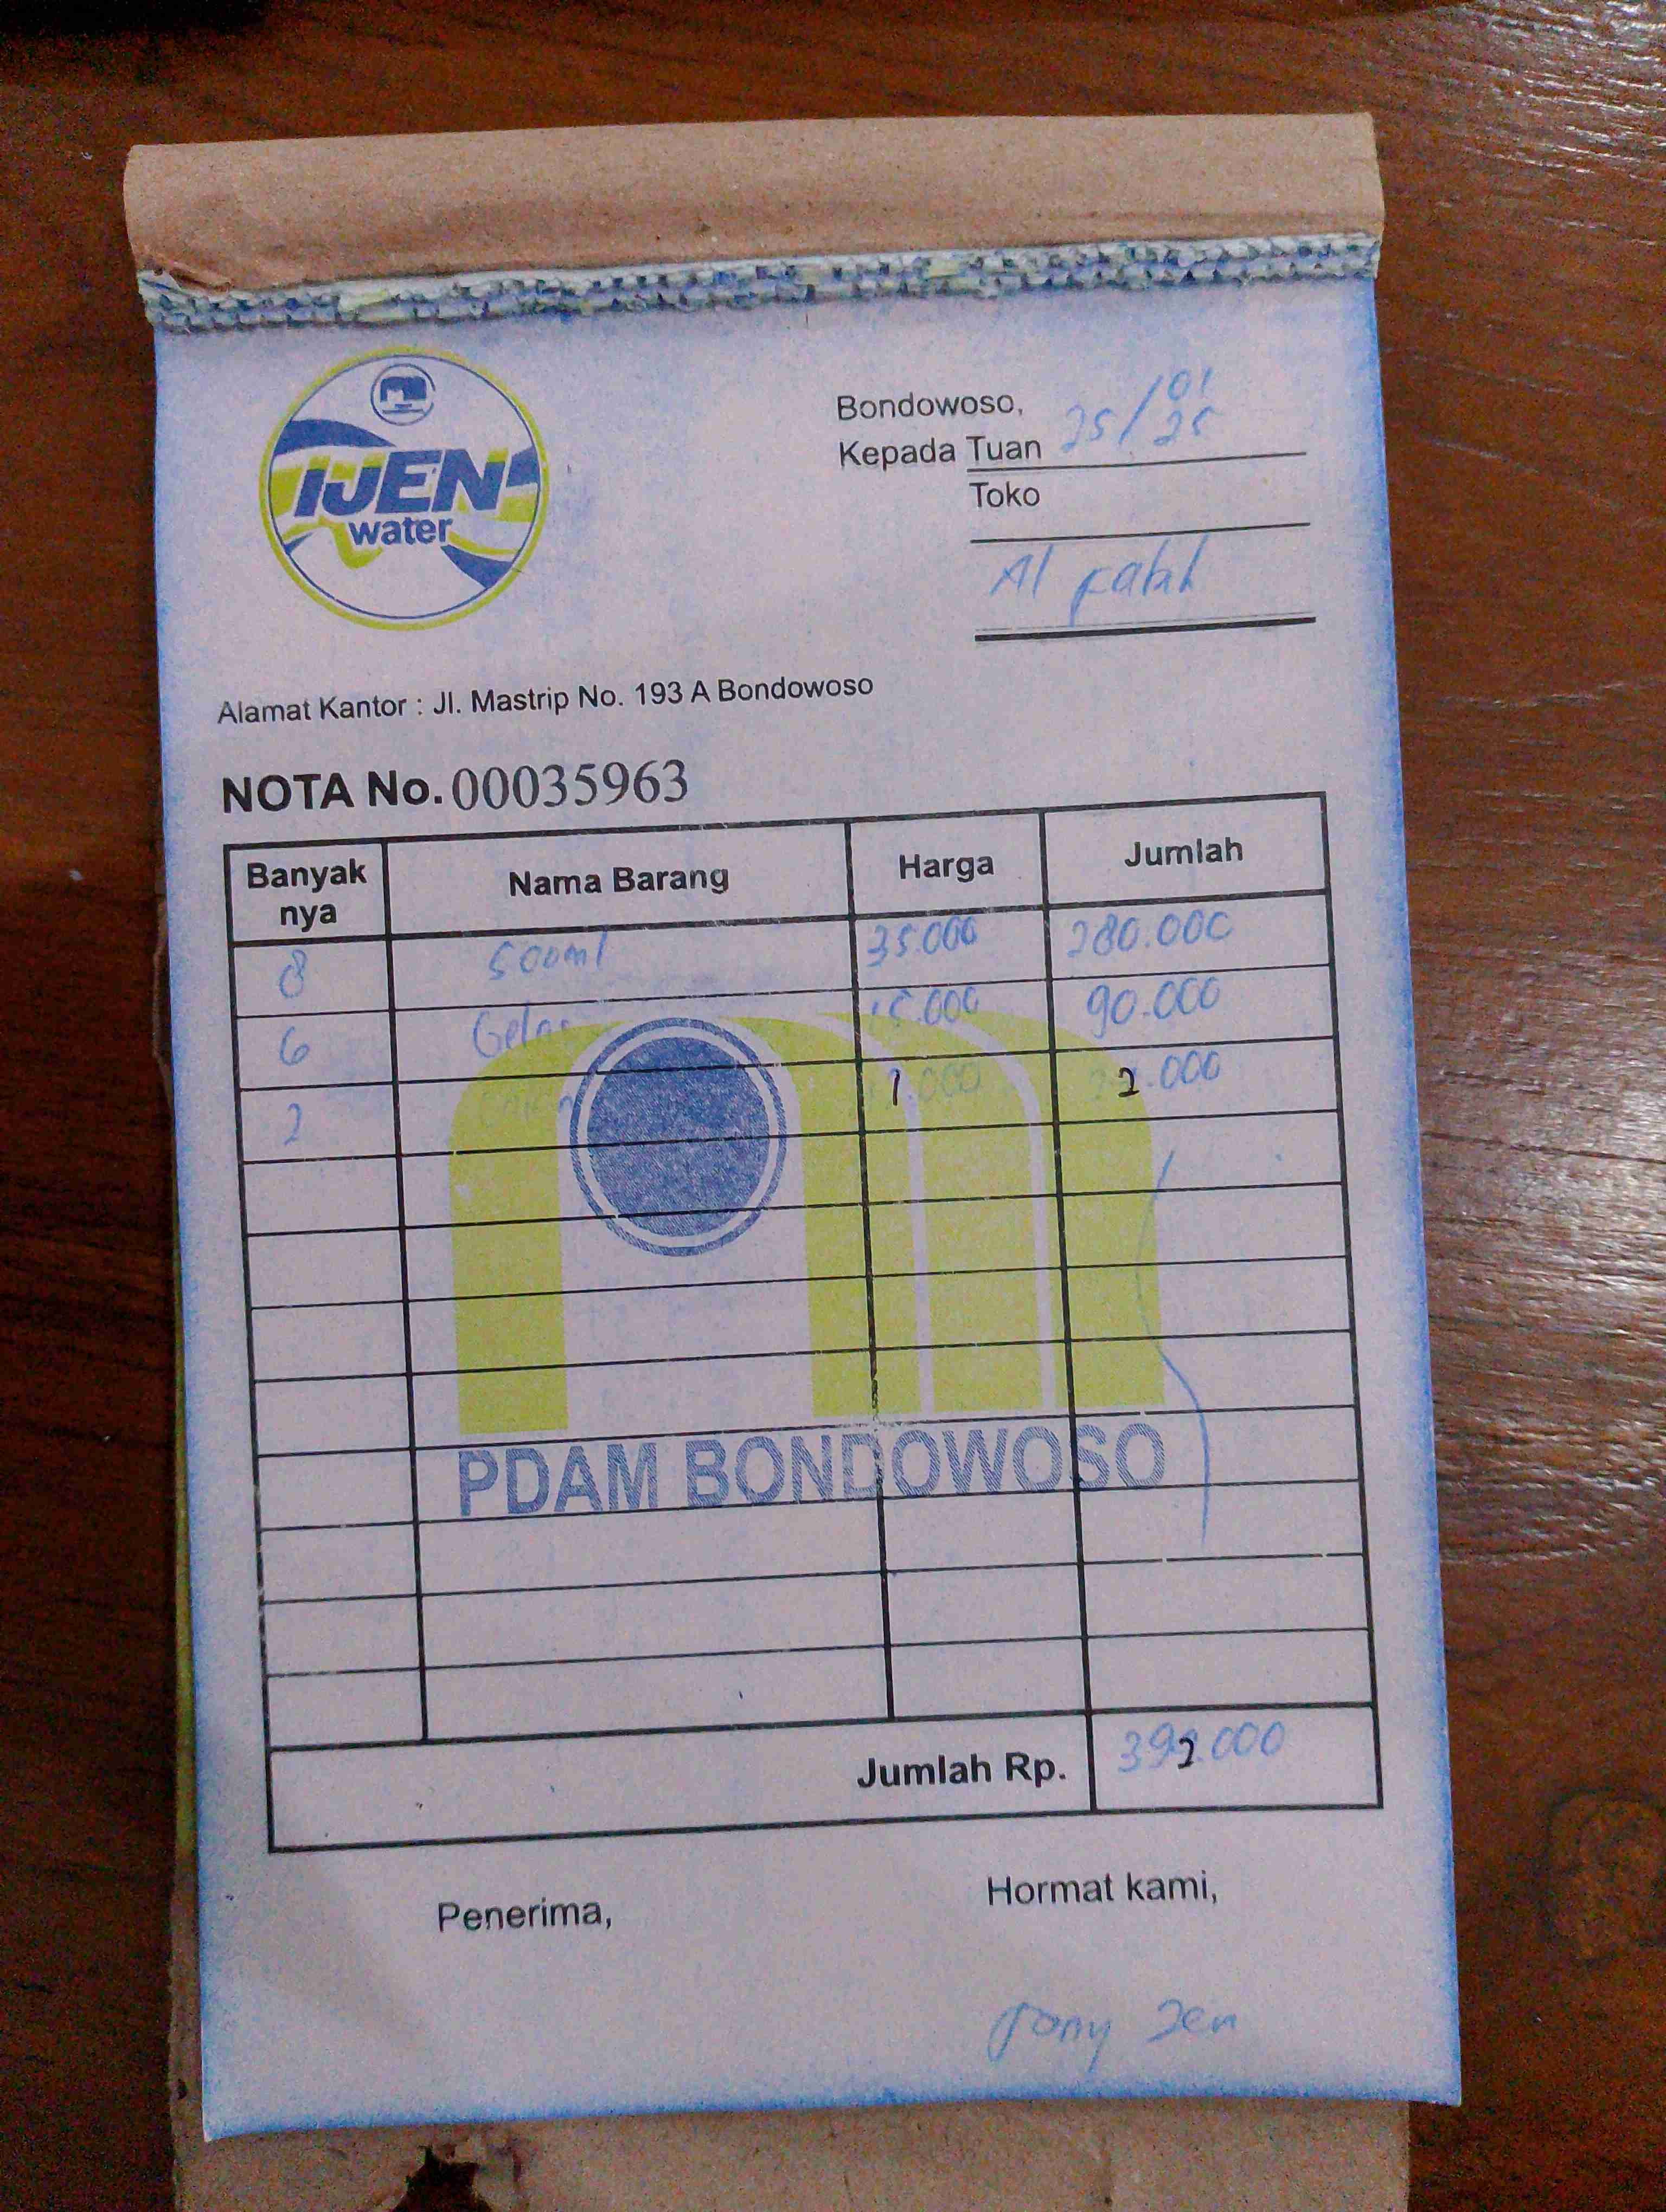 IJEN
water
Bondowoso, 25/01/25
Kepada Tuan
Toko
Al Falah
Alamat Kantor : Jl. Mastrip No. 193 A Bondowoso
NOTA No. 00035963
Banyak nya Nama Barang Harga Jumlah
8 500ml 35.000 280.000
6 Gelas 15.000 90.000
2
PDAM BONDOWOSO
Jumlah Rp. 392.000
Penerima, Hormat kami,